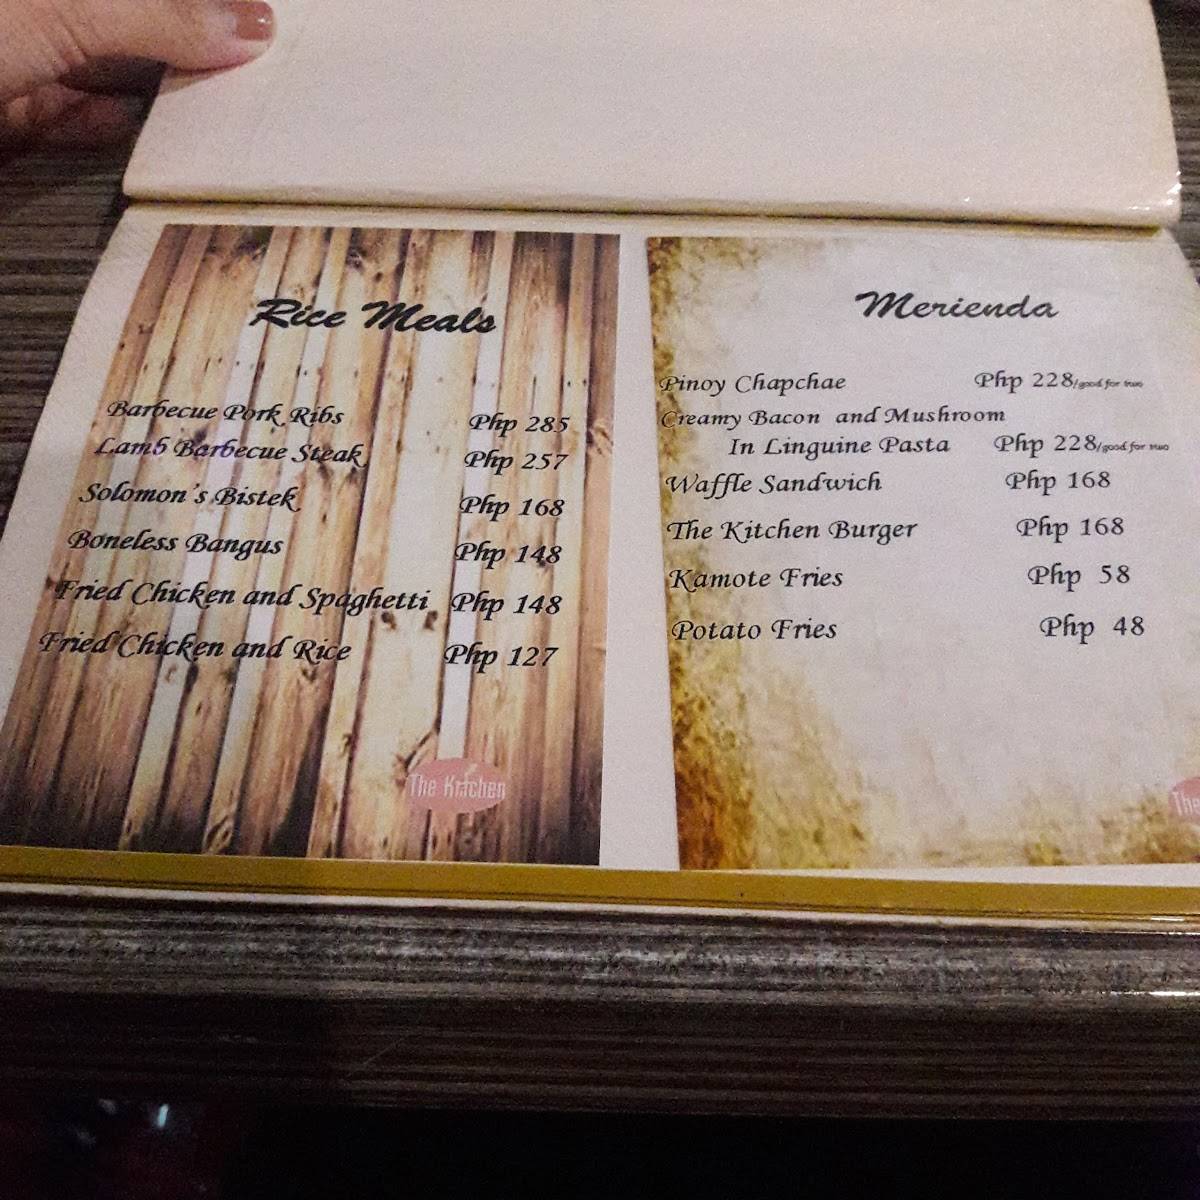 Rice Meals
Barbecue Pork Ribs Php 285
Lamb Barbecue Steak Php 257
Solomon's Bistek Php 168
Boneless Bangus Php 148
Fried Chicken and Spaghetti Php 148
Fried Chicken and Rice Php 127
The Kitchen
Merienda
Pinoy Chapchae Php 228/good for two
Creamy Bacon and Mushroom
In Linguine Pasta Php 228/good for two
Waffle Sandwich Php 168
The Kitchen Burger Php 168
Kamote Fries Php 58
Potato Fries Php 48